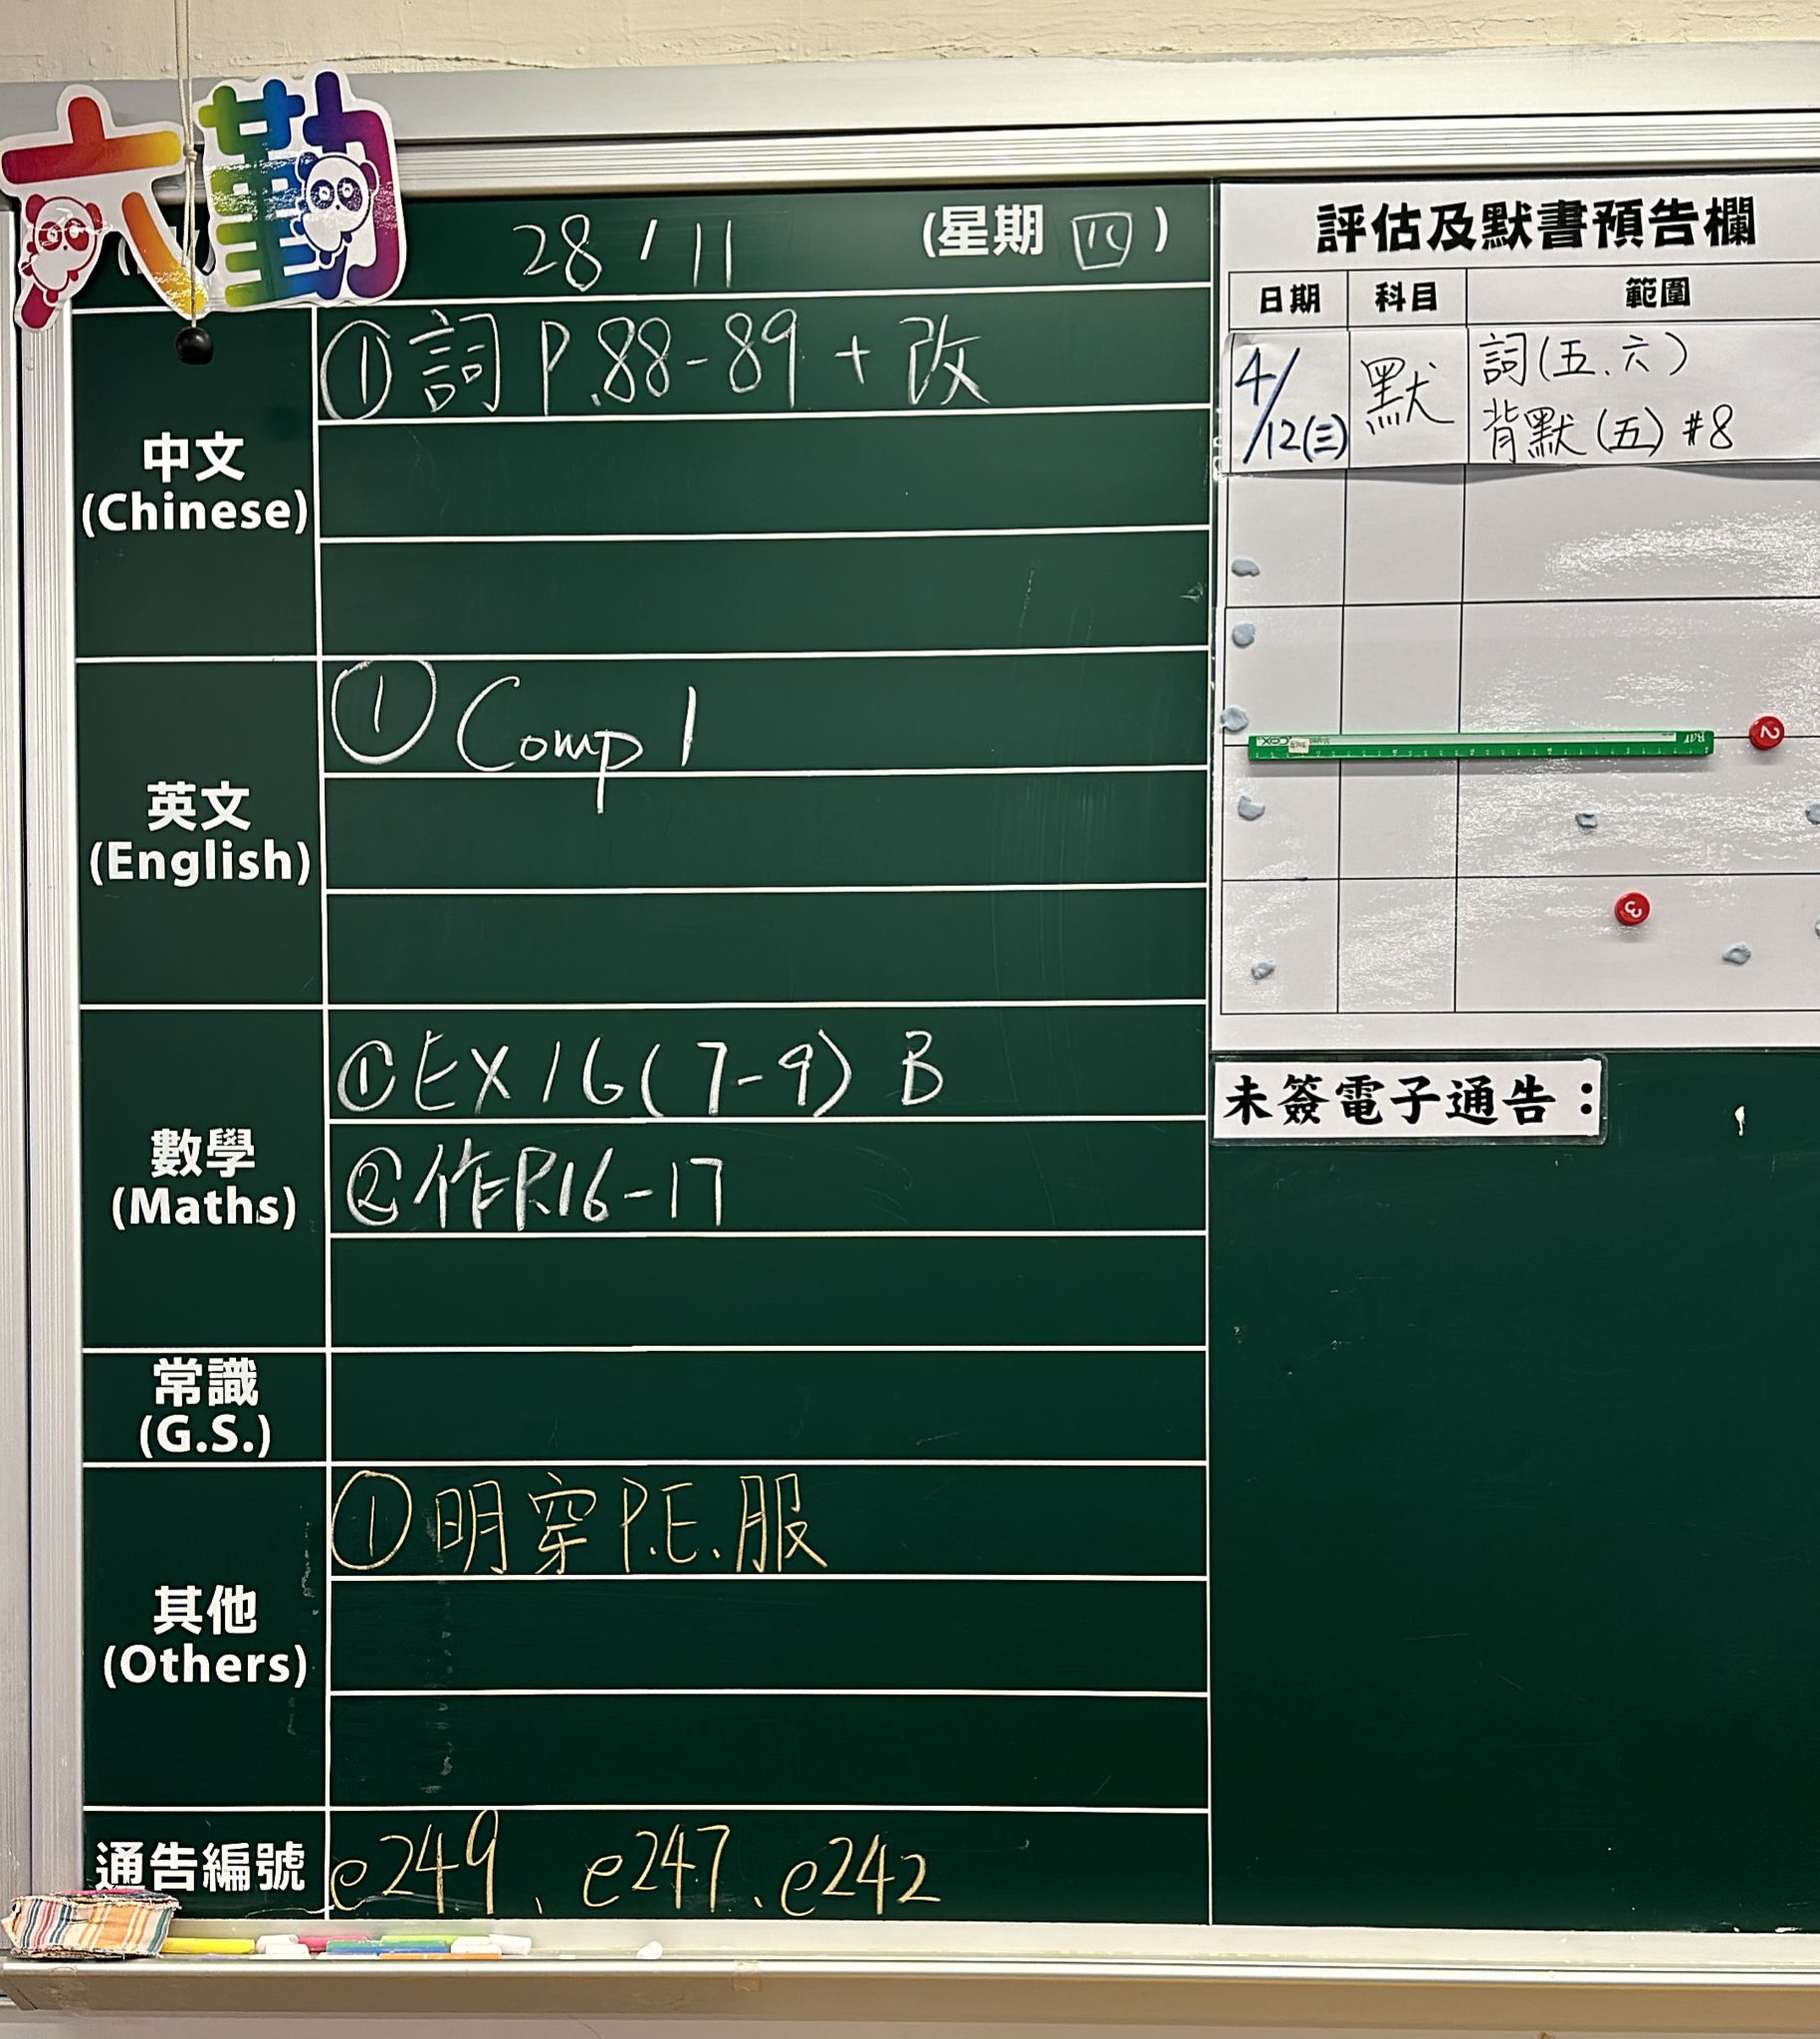 六勤
28/11 (星期四)
中文
(Chinese)
①詞 P.88-89 + 改
英文
(English)
① Comp 1
數學
(Maths)
①EX 16(7-9) B
②作P.16-17
常識
(G.S.)
其他
(Others)
①明穿P.E.服
通告編號
e249、e247、e242
評估及默書預告欄
日期 科目 範圍
4/12(三) 默 詞(五、六)
背默(五)#8
2
3
未簽電子通告：